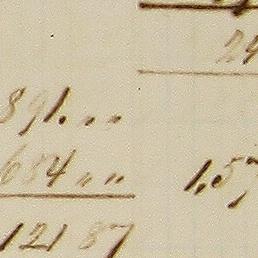 24
891. „
654 „ 1,57
121 87